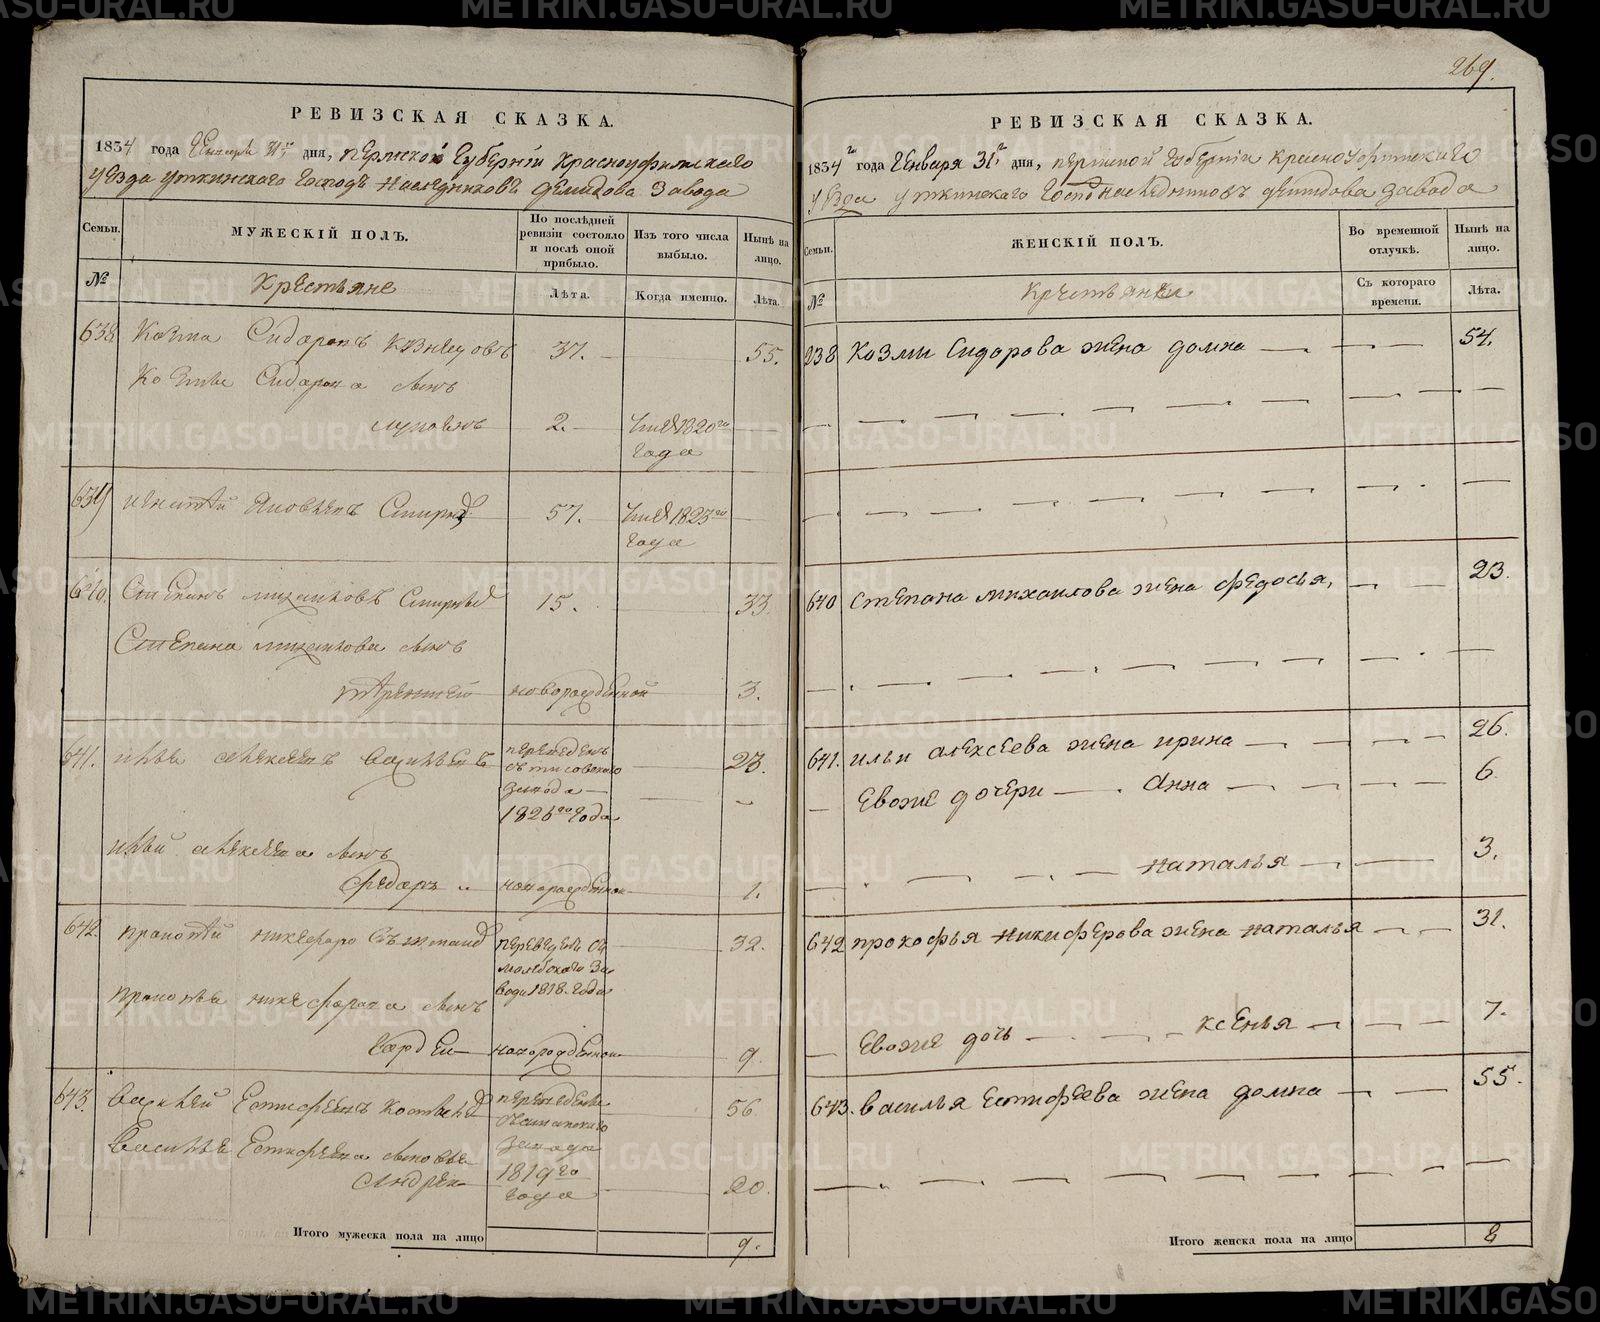 269.
РЕВИЗСКАЯ СКАЗКА.
1834 года Генваря 31го дня, Пермской Губерніи Красноуфимскаго
уезда уткинскаго Господъ Наследниковъ Демидова Завода
Семьи.
МУЖЕСКІЙ ПОЛЪ.
По послѣдней ревизіи состояло и послѣ оной прибыло.
Изъ того числа выбыло.
Нынѣ на лицо.
№
Крестьяне
Лѣта.
Когда именно.
Лѣта.
638 Козма Сидоровъ Кузнецовъ 37. 55.
Козмы Сидорова сынъ
2. 1820го
года
639 игнатей Яковлевъ Смирновъ 57. 1823го
года
640. Степанъ михаиловъ Смирновъ 15. 33.
Степана михаилова сынъ
новорожденной 3.
641. илья алексеевъ Васильевъ переведенъ 23.
завода
1826го года
ильи алексеева сынъ
Федоръ новорожденной 1.
642. прокопей никифоровъ 32.
1818. года
прокопья никифорова сынъ
новорожденной 9.
643. василей Естифеевъ переведены 56
завода
Василья Естифеева сыновья 1819го
Андрей года 20.
Итого мужеска пола на лицо 9.
РЕВИЗСКАЯ СКАЗКА.
1834го года Генваря 31го дня, пермской губерніи Красноуфимскаго
уезда уткинскаго Господ наследниковъ демидова завода
Семьи.
ЖЕНСКІЙ ПОЛЪ.
Во временной отлучкѣ.
Нынѣ на лицо.
№
Крестьянки
Съ котораго времени.
Лѣта.
238 Козми Сидорова жена домна 54.
640 Степана михаилова жена федосья, 23.
641. ильи алексеева жена ирина 26.
Евоже дочери Анна 6.
наталья 3.
642 прокофья никиферова жена наталья 31.
Евоже дочь ксенья 7.
643. василья Естифеева жена домна 55.
Итого женска пола на лицо 8
METRIKI.GASO-URAL.RU